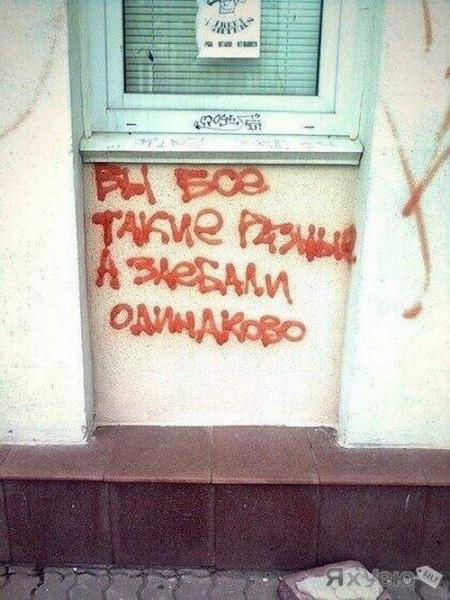 ВЫ ВСЕ
ТАКИЕ РАЗНЫЕ
А ЗАЕБАЛИ
ОДИНАКОВО
ЯХУЕЮ.RU